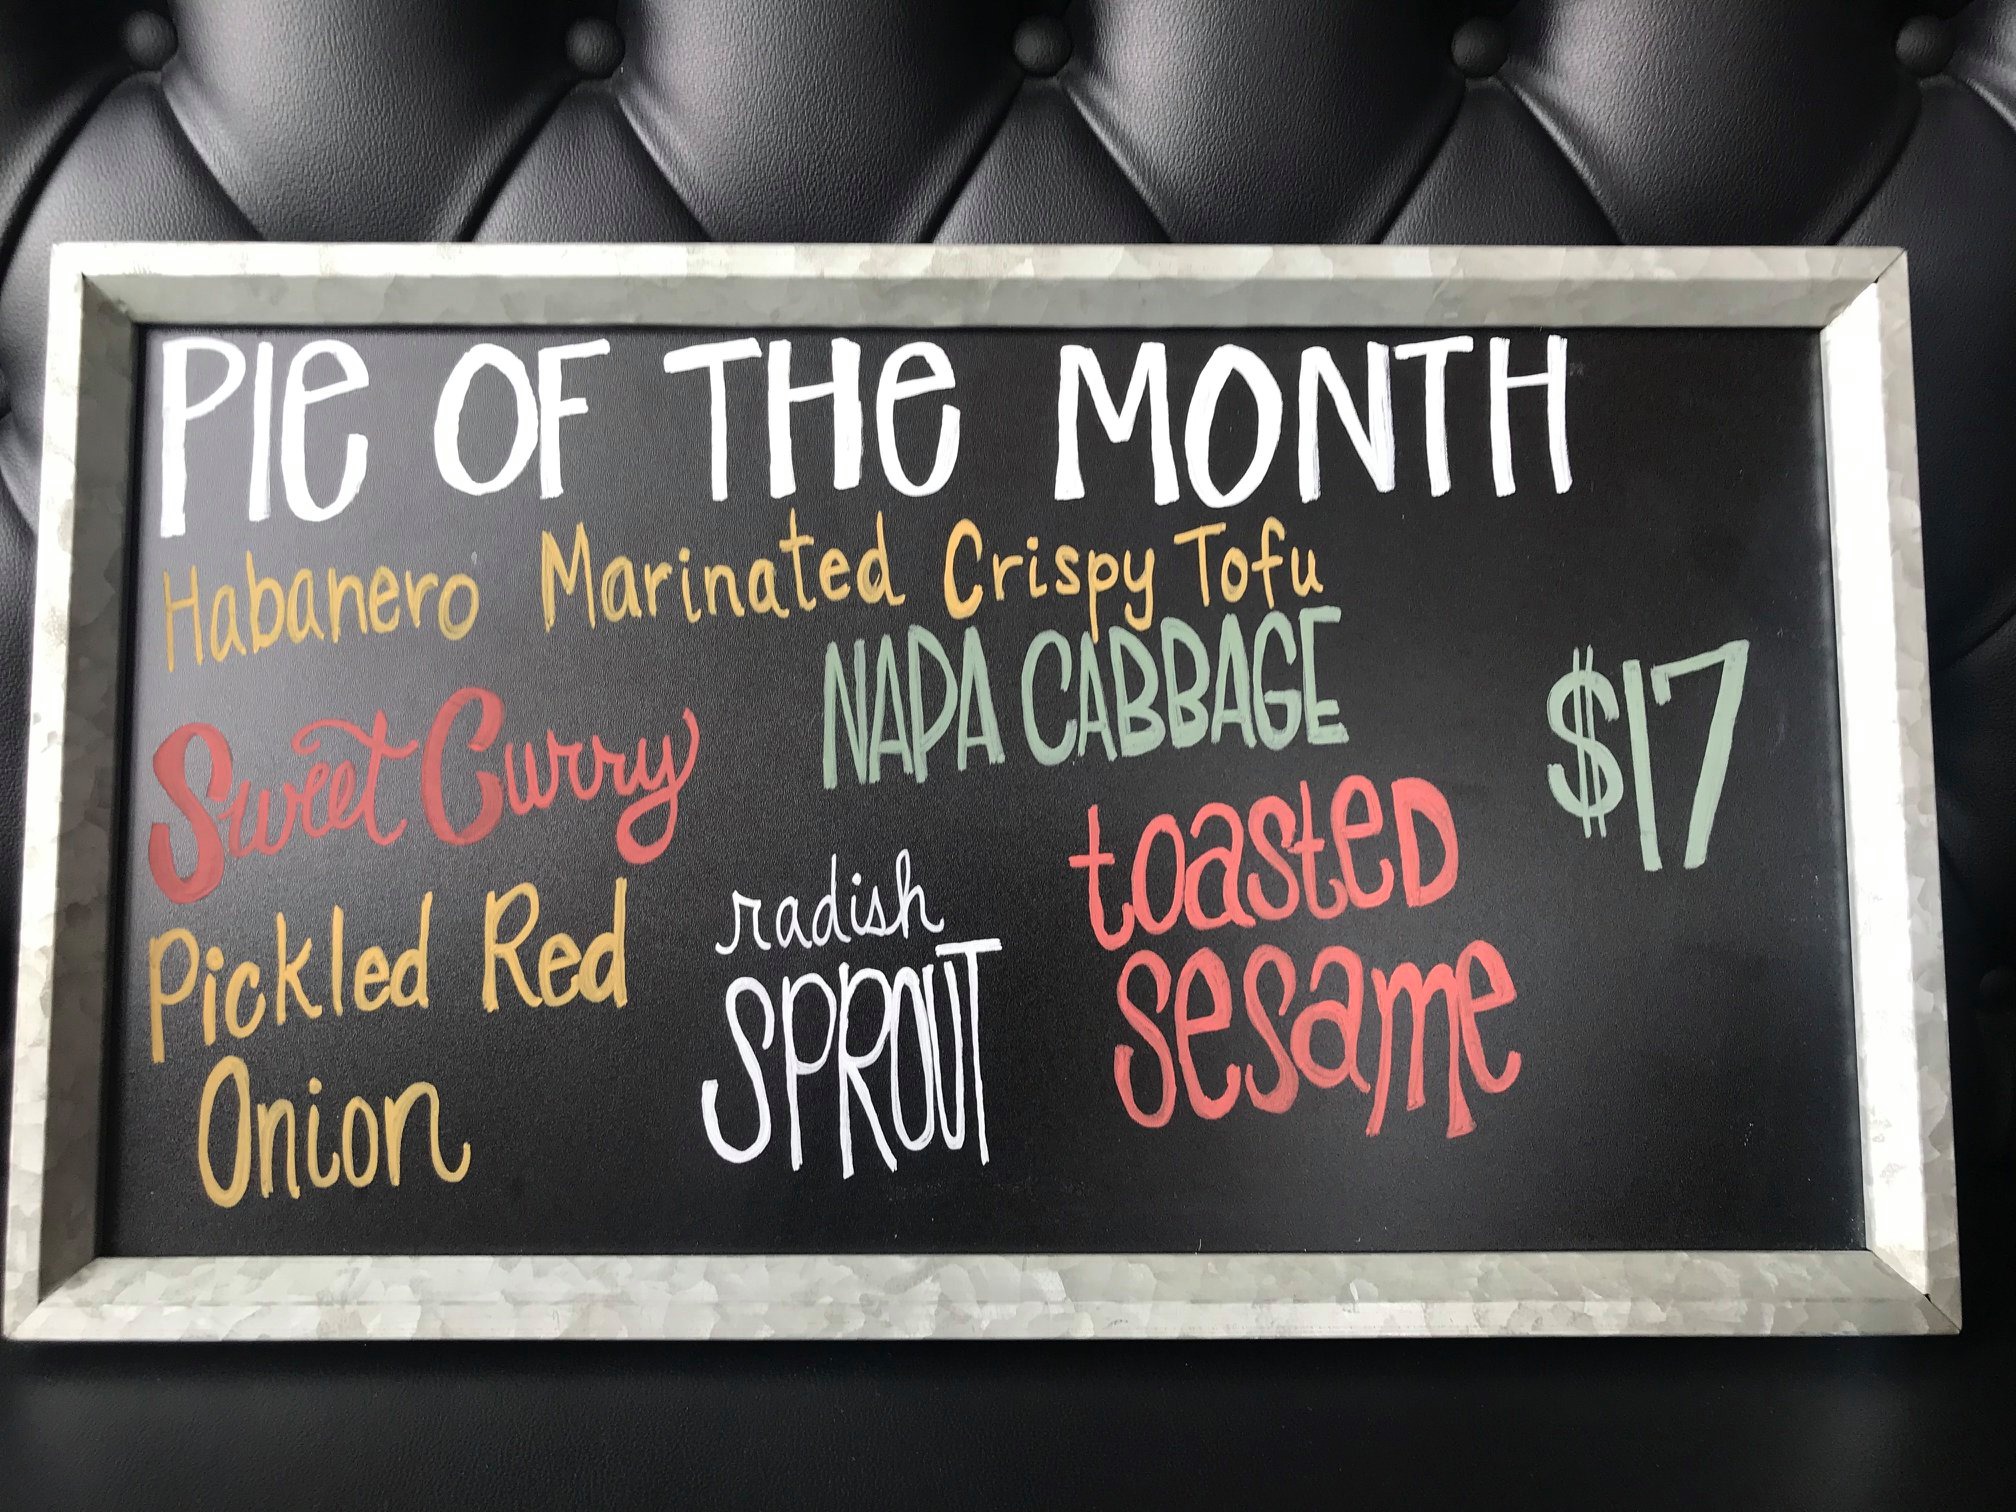 PIe OF THe MONTH
Habanero Marinated Crispy Tofu
Sweet Curry
NAPA CABBAGE
$17
Pickled Red
Onion
radish
SPROUT
toasteD
sesame